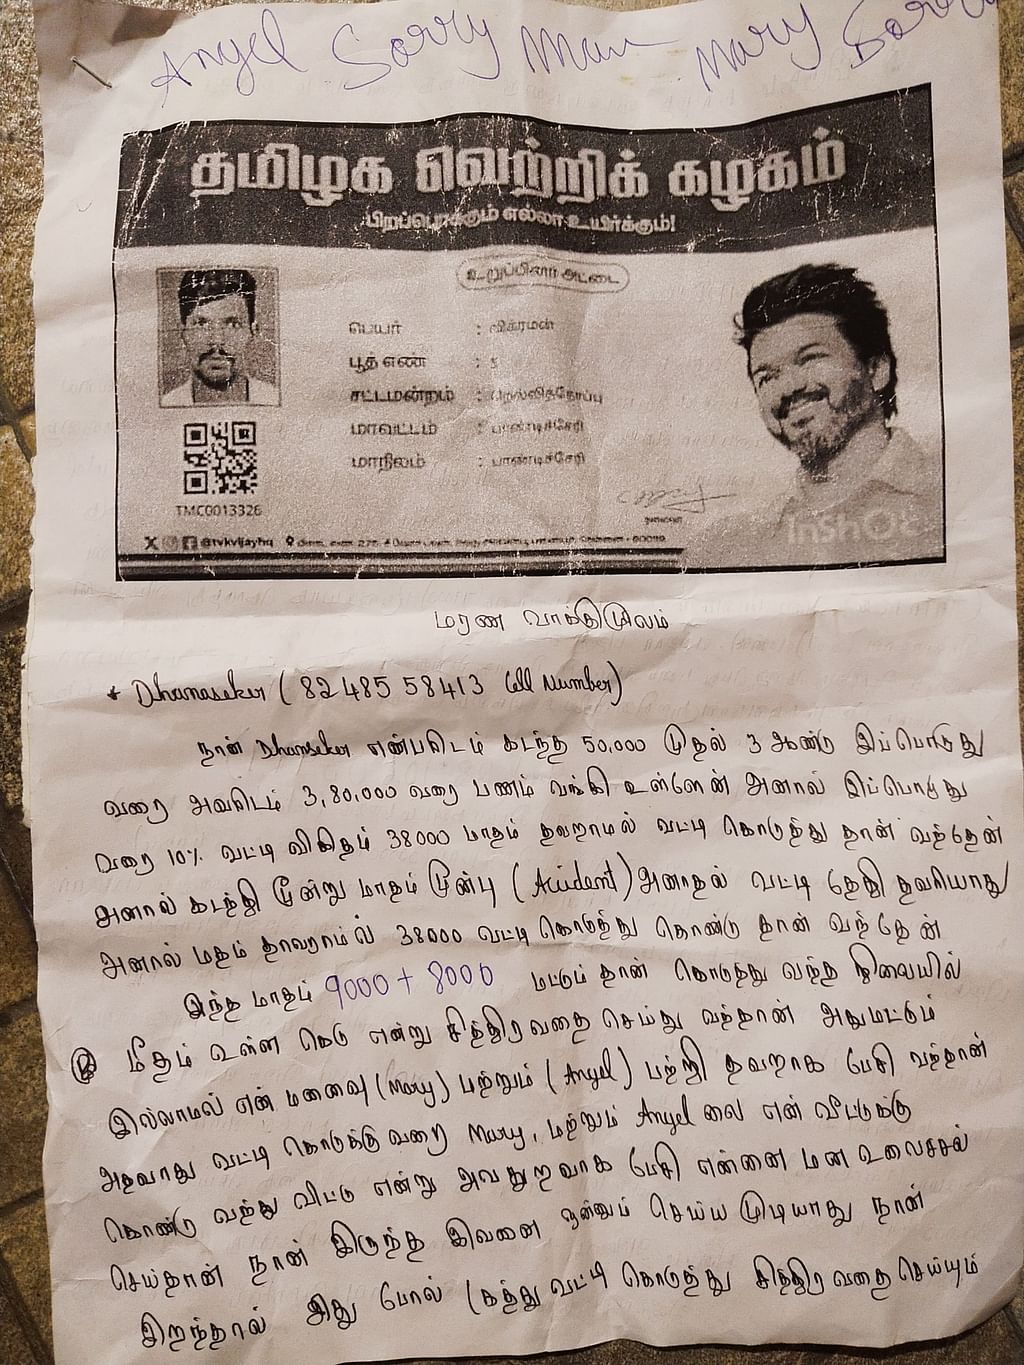 Angel Sorry Mau Mary Sorry
தமிழக வெற்றிக் கழகம்
பிறப்பொக்கும் எல்லா உயிர்க்கும்!
உறுப்பினர் அட்டை
பெயர் : விக்ரமன்
பூத் எண் : 5
சட்டமன்றம் : நெல்லித்தோப்பு
மாவட்டம் : பாண்டிச்சேரி
மாநிலம் : பாண்டிச்சேரி
TMC0013326
தலைவர்
@tvkvijayhq
InShO
மரண வாக்குமூலம்
* Dhanaseker (82485 58413 Cell Number)
நான் Dhanseker என்பவிடம் கடந்த 50,000 முதல் 3 ஆண்டு இப்பொழுது
வரை அவனிடம் 3,80,000 வரை பணம் வங்கி உள்ளேன் அனால் இப்பொழுது
வரை 10% வட்டி விகிதம் 38000 மாதம் தவறாமல் வட்டி கொடுத்து தான் வந்தேன்
அனால் கடந்தி மூன்று மாதம் முன்பு (Accident) அனாதல் வட்டி தேதி தவரியாது
அனால் மதம் தாவறாமல் 38000 வட்டி கொடுத்து கொண்டு தான் வந்தேன்
இந்த மாதம் 9000 + 8000 மட்டும் தான் கொடுத்து வந்த நிலையில்
மீதம் உள்ள கெடு என்று சித்திரவதை செய்து வந்தான் அதுமட்டும்
இல்லாமல் என் மனைவு (Mary) மற்றும் (Angel) பற்றி தவறாக பேசி வந்தான்
அதவாது வட்டி கொடுக்கு வறை Mary, மற்றும் Angel லை என் வீட்டுக்கு
கொண்டு வந்து விட்டு என்று அவதுறவாக பேசி என்னை மன உலைச்சல்
செய்தான் நான் இருந்த இவனை ஒன்னும் செய்ய முடியாது நான்
இறந்தால் இது போல் (கத்து வட்டி கொடுத்து சித்திரவதை செய்யும்